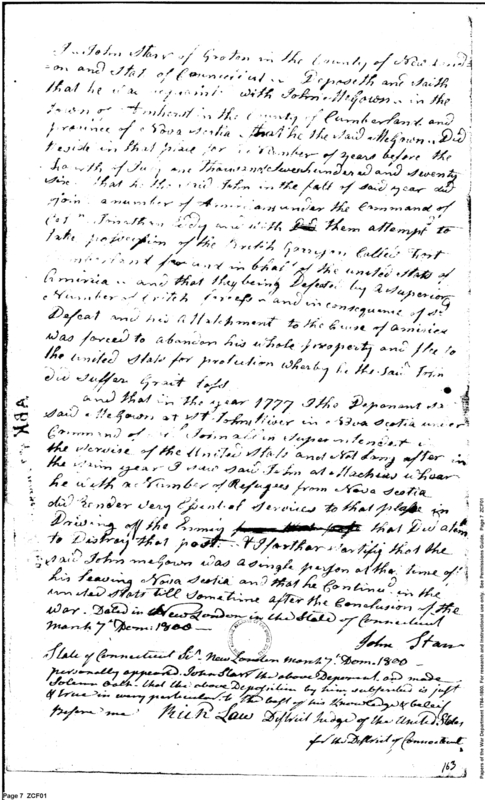 I John Starr of Groton in the County of New Lond
on and Stat of Connecticut Deposeth and saith
that he was acquainted with John McGown in the
Town of Amherst in the County of Cumberland and
province of Nova Scotia that he the said McGown Did
Reside in that place for a Number of years before the
fourth of July one thousand seven hundered and seventy
six that he the said John in the fall of said year did
join a number of Americans under the Command of
Col Jonathan Eddy and with them attempt to
take possession of the British Garrison Called Fort
Cumberland for and in behalf of the united Stats of
America and that they being Defeted by a superior
Number of British forces and in consequence of sd
Defeat and his Attatchment to the Cause of America
was forced to abandon his whole property and flee to
the united Stats for protection whereby he the said John
did suffer Great loss
and that in the year 1777 I the Deponant
said McGown at St Johns River in Nova Scotia under
Command of Superintendent in
the service of the United Stats and Not long after in
the same year I saw said John at Machias whear
he with a Number of Refugees from Nova Scotia
did Render very Esential services to that place in
Driving off the Enemy that Did atem
to Distroy that post & I farther Cartify that the
said John McGown was a single person at the time of
his leaving Nova Scotia and that he Continued in the
united Stats till sometime after the Conclusion of the
war. Dated in New London in the State of Connecticut
March 7th Dom. 1800
John Starr
State of Connecticut Ss. New London March 7. Dom. 1800
personally appeared John Starr the above Deponent and made
Solemn Oath that the above Deposition by him subscribed is just
& true in every particular to the best of his knowledge & beleif
Before me Rich Law District Judge of the United States
for the District of Connecticut
163
Page 7 ZCF01
Papers of the War Department 1784-1800. For research and instructional use only. See Permissions Guide. Page 7 ZCF01